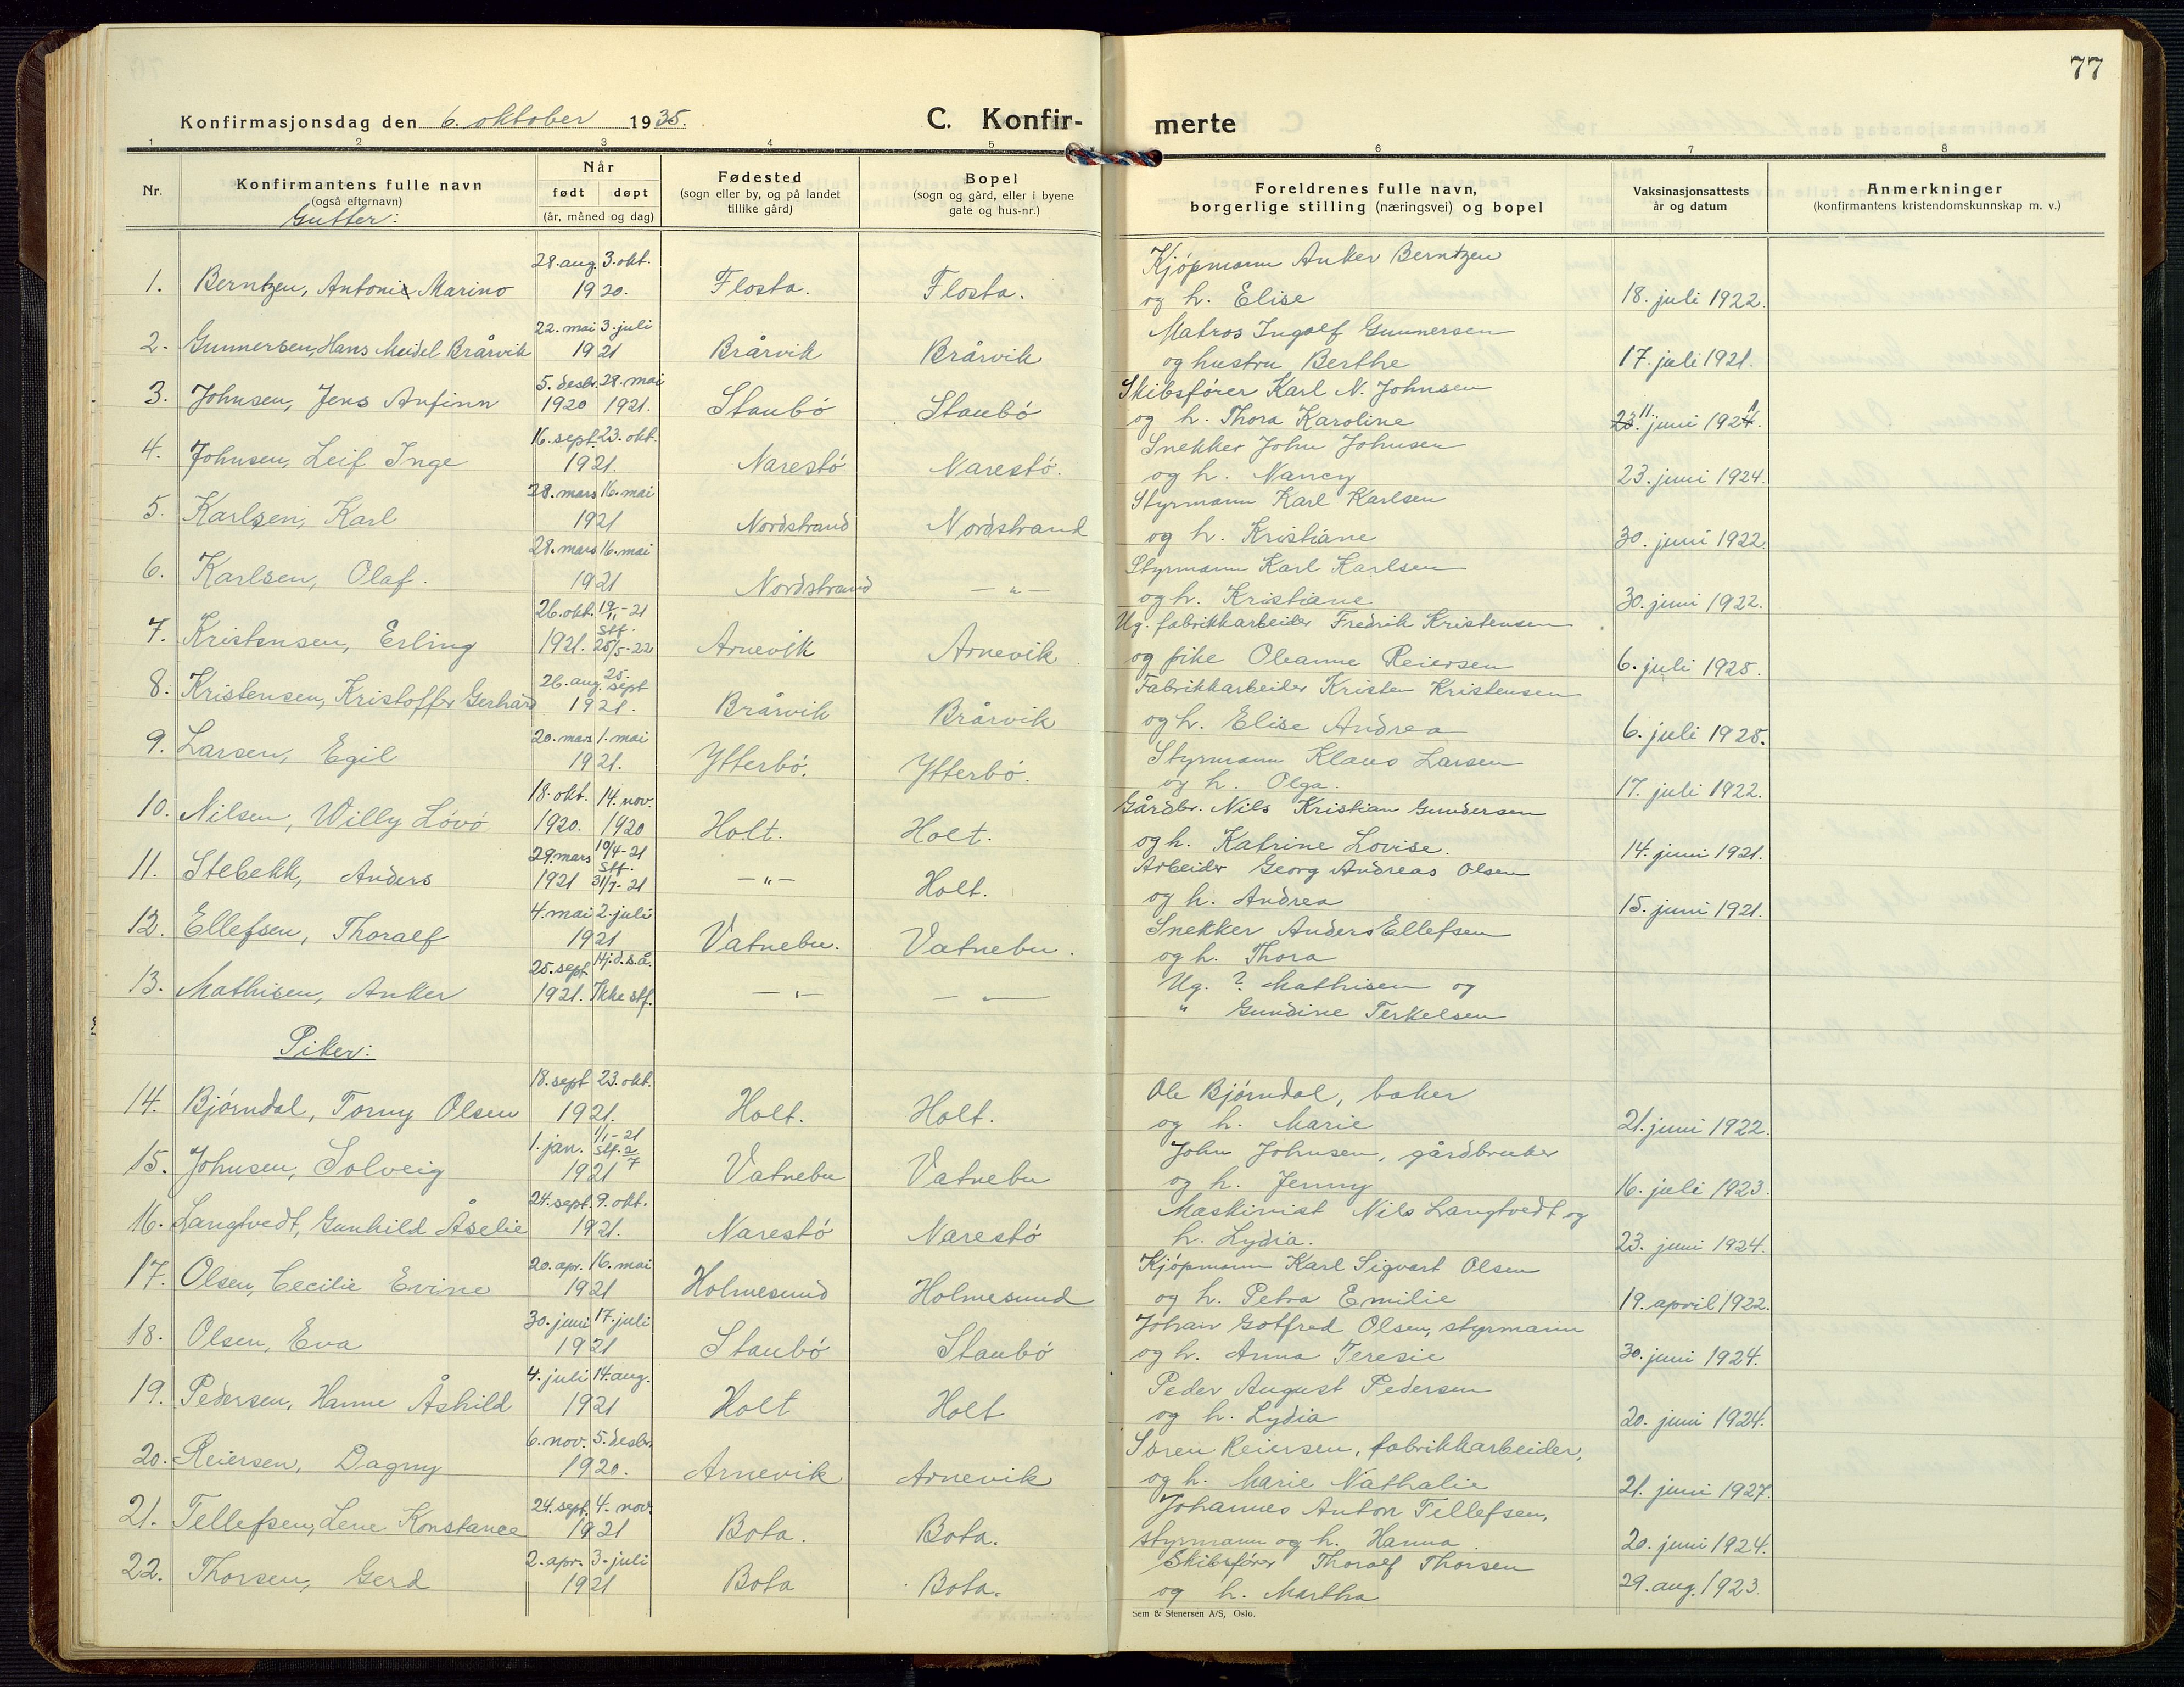 77
Konfirmasjonsdag den 6. oktober 1935.
C. Konfir- merte
1 2 3 4 5 6 7 8
Nr.
Konfirmantens fulle navn
(også efternavn)
Når
født døpt
(år, måned og dag)
Fødested
(sogn eller by, og på landet
tillike gård)
Bopel
(sogn og gård, eller i byene
gate og hus-nr.)
Foreldrenes fulle navn,
borgerlige stilling (næringsvei) og bopel
Vaksinasjonsattests
år og datum
Anmerkninger
(konfirmantens kristendomskunnskap m. v.)
Gutter:
28. aug. 3. okt. Kjøpmann Anker Berntzen
1. Berntzen, Antonie Marino 1920. Flosta. Flosta. og h. Elise 18. juli 1922.
22. mai 3. juli Matros Ingolf Gunnersen
2. Gunnersen, Hans Meidel Brårvik 1921 Brårvik Brårvik og hustru Berthe 17. juli 1921.
5. desbr. 28. mai Skibsfører Karl N. Johnsen
3. Johnsen, Jens Anfinn 1920 1921. Staubö Staubö og h. Thora Karoline 23. 11. juni 1924.
16. sept. 23. okt. Snekker John Johnsen
4. Johnsen, Leif Inge 1921. Narestö Narestö. og h. Nancy 23. juni 1924.
28. mars 16. mai Styrmann Karl Karlsen
5. Karlsen, Karl 1921 Nordstrand Nordstrand og h. Kristiane 30. juni 1922.
28. mars 16. mai Styrmann Karl Karlsen
6. Karlsen, Olaf. 1921 Nordstrand — " — og h. Kristiane 30. juni 1922.
26. okt. 19/11-21 Ug. fabrikkarbeider Fredrik Kristensen
7. Kristensen, Erling 1921. stf. 25/5-22 Arnevik Arnevik og pike Oleanne Reiersen 6. juli 1925.
26. aug. 25. sept Fabrikkarbeider Kristen Kristensen
8. Kristensen, Kristoffer Gerhard 1921. Brårvik Brårvik og h. Elise Andrea 6. juli 1925.
20. mars 1. mai Styrmann Klaus Larsen
9. Larsen, Egil 1921. Ytterbö. Ytterbö. og h. Olga. 17. juli 1922.
18. okt. 14. nov. Gårdbr. Nils Kristian Gundersen
10. Nilsen, Willy Lövö 1920. 1920 Holt. Holt. og h. Katrine Lovise. 14. juni 1921.
29. mars 10/4-21 Arbeider Georg Andreas Olsen
11. Stebekk, Anders 1921 stf. 31/7-21 — " — Holt. og h. Andrea 15. juni 1921.
4. mai 2. juli Snekker Anders Ellefsen
12. Ellefsen, Thoralf 1921 Vatnebu. Vatnebu. og h. Thora
25. sept. Hj.d. s.å. Ug. ? Mathisen og
13. Mathisen, Anker 1921. Ikke stf. — " — — " — " Gundine Terkelsen
Piker:
18. sept 23. okt. Ole Bjørndal, baker
14. Bjørndal, Torny Olsen 1921. Holt. Holt. og h. Marie 21. juni 1922.
1. jan. 1/1-21 John Johnsen, gårdbruker
15. Johnsen, Solveig 1921 stf. 2/7 Vatnebu Vatnebu og h. Jenny 16. juli 1923.
24. sept. 9. okt. Maskinist Nils Langtvedt og
16. Langtvedt, Gunhild Åselie 1921. Narestö Narestö h. Lydia. 23. juni 1924.
20. apr. 16. mai Kjøpmann Karl Sigvart Olsen
17. Olsen, Cecilie Evine 1921 Holmesund Holmesund og h. Petra Emilie 19. april 1922.
30. juni 17. juli Johan Gotfred Olsen, styrmann
18. Olsen, Eva 1921 Staubö Staubö og h. Anna Teresie 30. juni 1924.
4. juli 14. aug. Peder August Pedersen
19. Pedersen, Hanne Åshild 1921 Holt Holt og h. Lydia 20. juni 1924.
6. nov. 5. desbr. Søren Reiersen, fabrikkarbeider,
20. Reiersen, Dagny 1920. Arnevik Arnevik og h. Marie Nathalie 21. juni 1927.
24. sept. 4. nov. Johannes Anton Tellefsen,
21. Tellefsen, Lene Konstance 1921 Bota. Bota. styrmann og h. Hanna. 20. juni 1924.
2. apr. 3. juli Skibsfører Thoralf Thorsen
22. Thorsen, Gerd 1921 Bota Bota. og h. Martha 29. aug. 1923.
Sem & Stenersen A/S, Oslo.